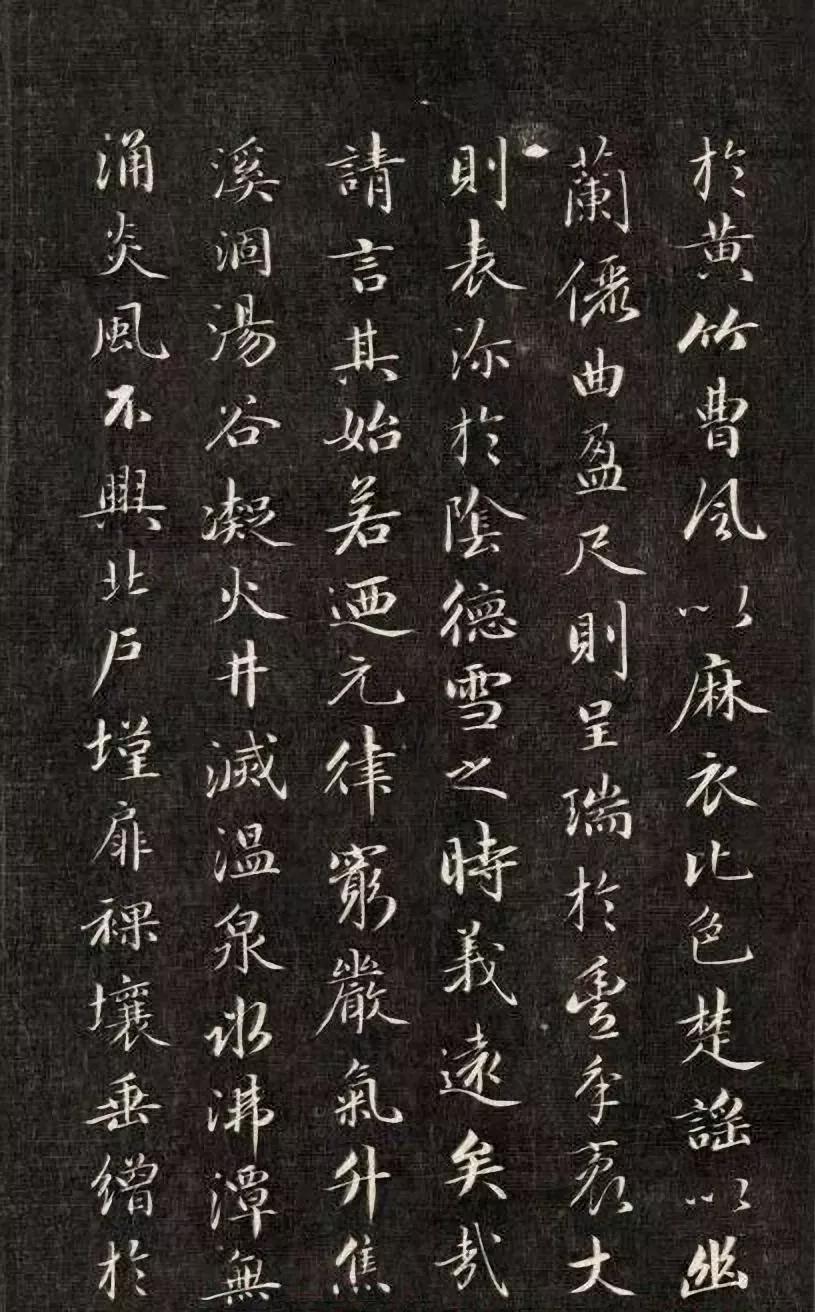 於黄竹曹风以麻衣比色楚謡以幽
蘭儷曲盈尺則呈瑞於豊年袤大
則表沵於陰德雪之時義遠矣哉
請言其始若迺元律窮嚴氣升焦
溪涸湯谷凝火井滅温泉冰沸潭無
涌炎風不興北戶墐扉裸壤垂繒於